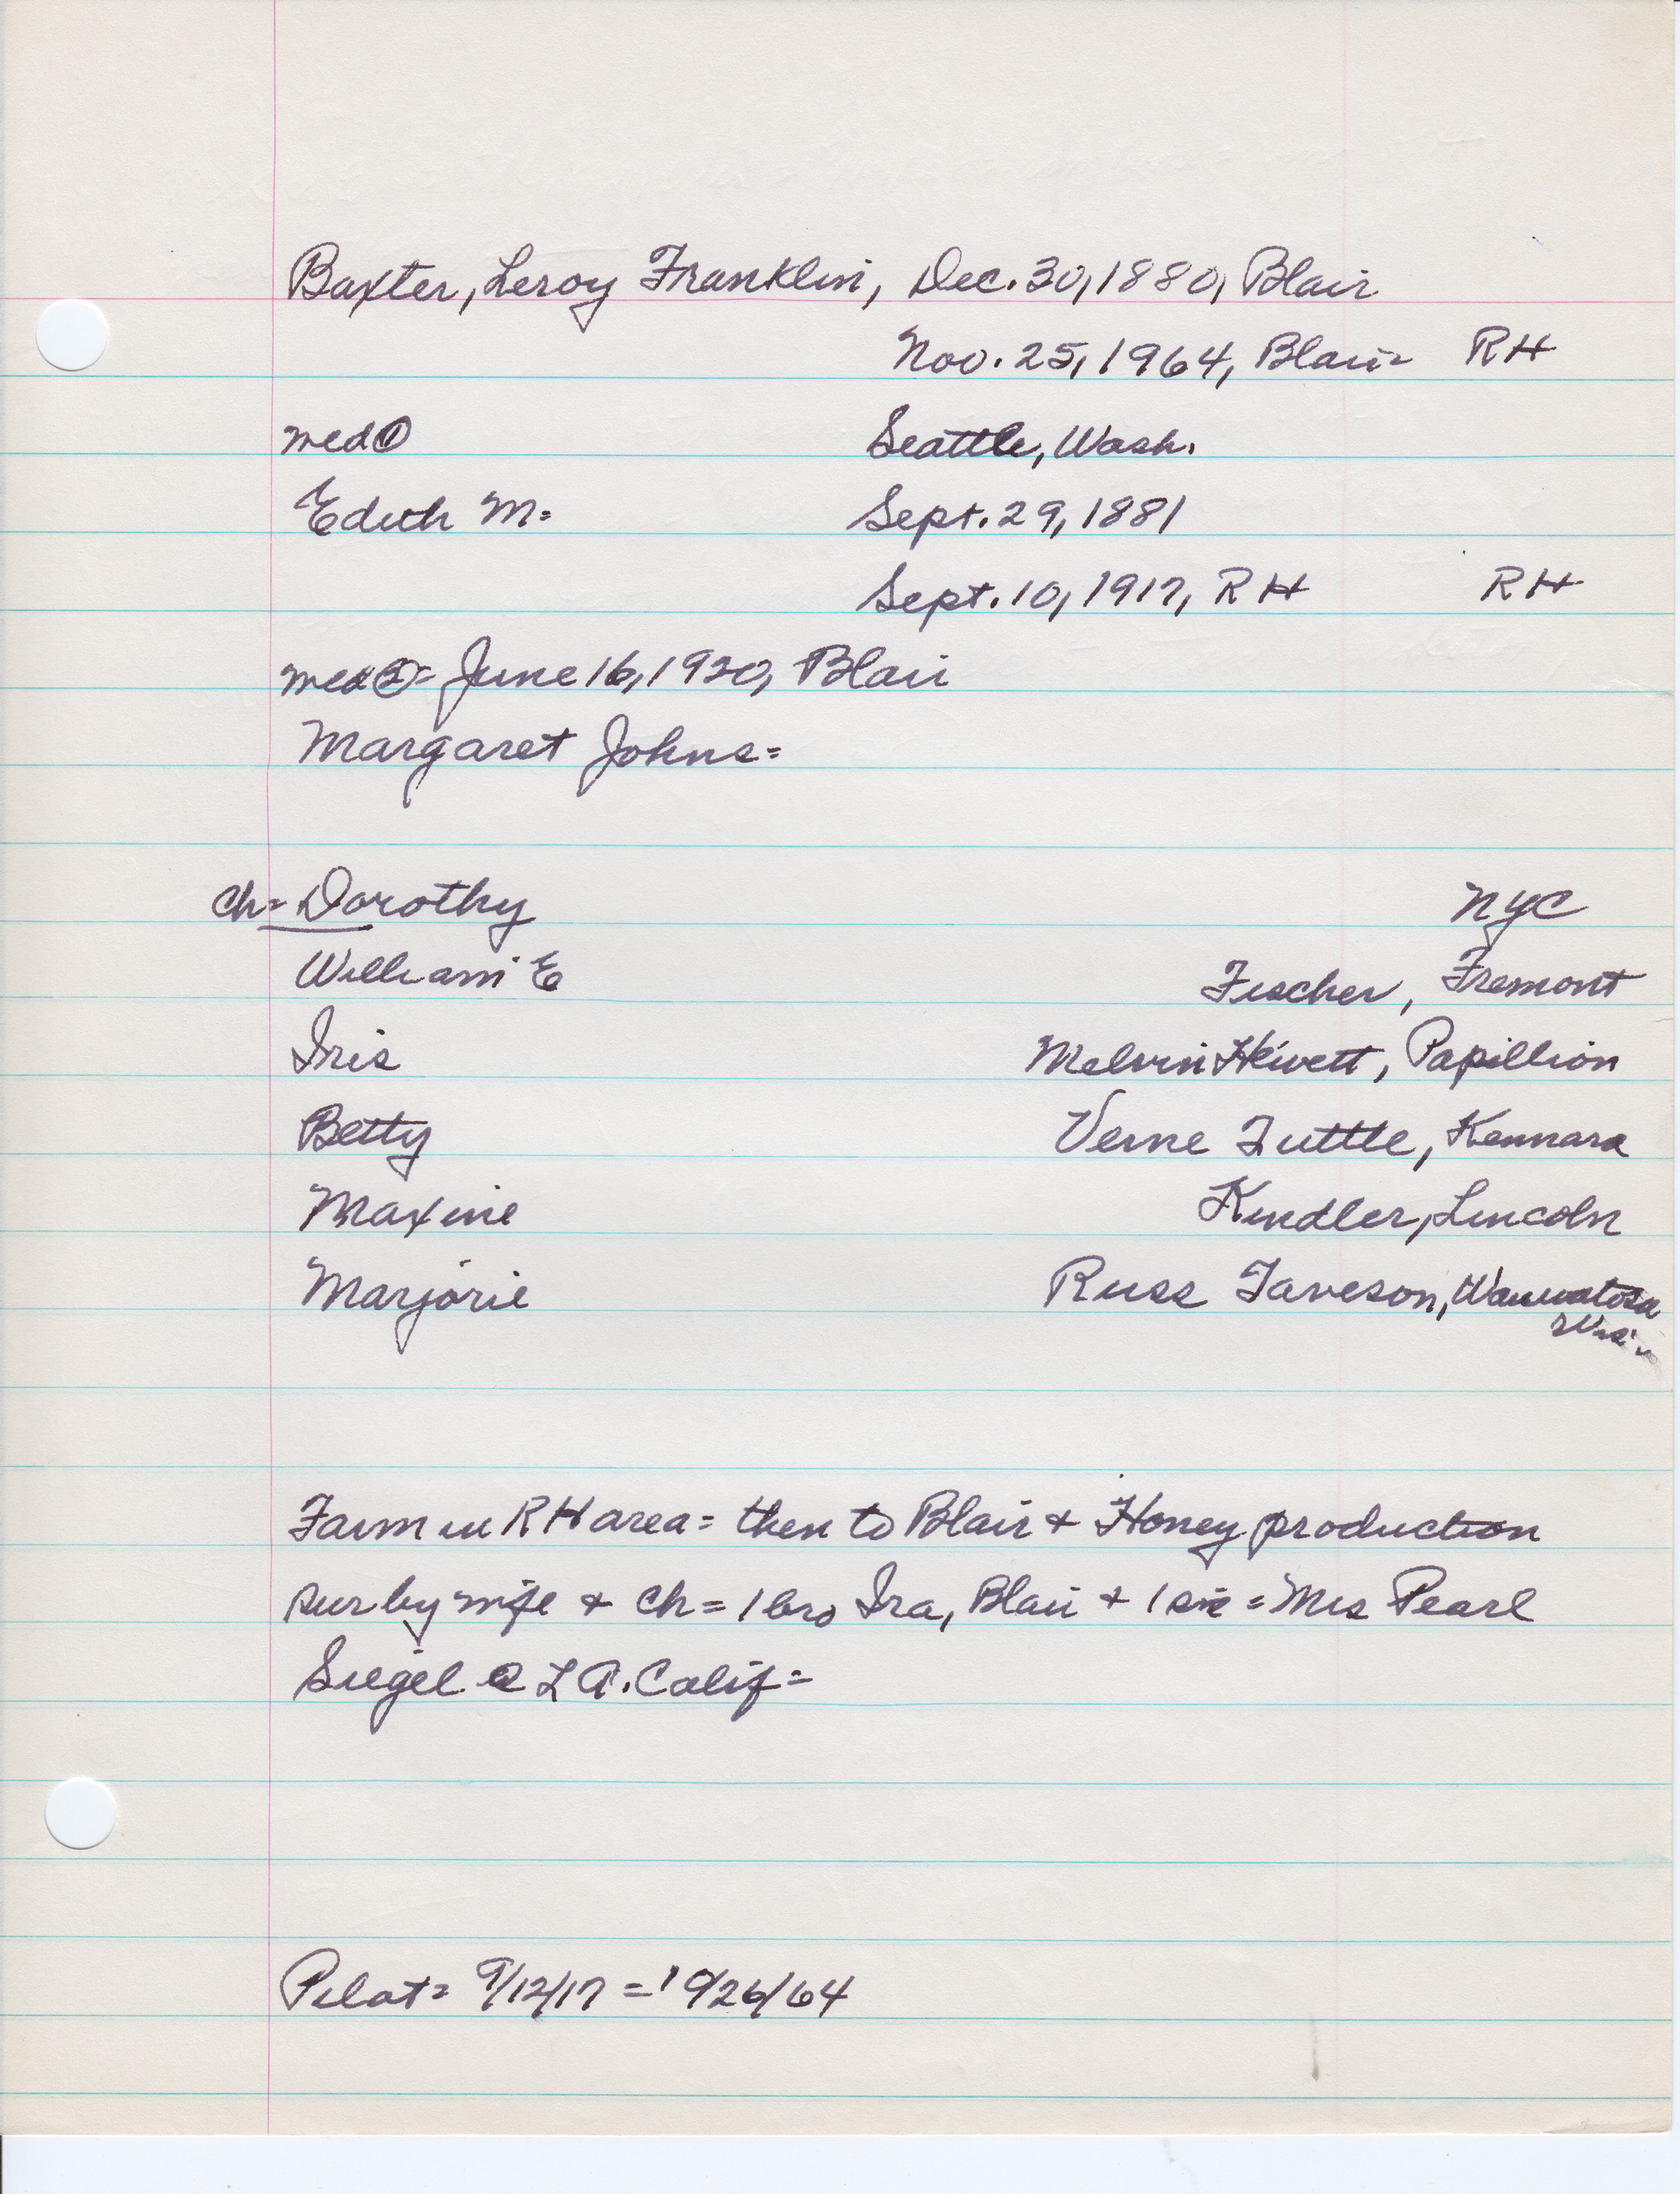 Baxter, Leroy Franklin, Dec. 30, 1880, Blair
Nov. 25, 1964, Blair RH
med ① Seattle, Wash.
Edith M= Sept. 29, 1881
Sept. 10, 1917, RH RH
med ②= June 16, 1920, Blair
Margaret Johns=
ch= Dorothy NYC
William E Fischer, Fremont
Iris Melvin Hewett, Papillion
Betty Verne Tuttle, Kennard
Maxine Kindler, Lincoln
Marjorie Russ Taveson, Wauwatosa
Wis.
Farm in RH area= then to Blair + Honey production
sur by wife + ch= 1 bro Ira, Blair + 1 sis = Mrs Pearl
Siegel @ LA. Calif=
Pilot= 9/12/17 =